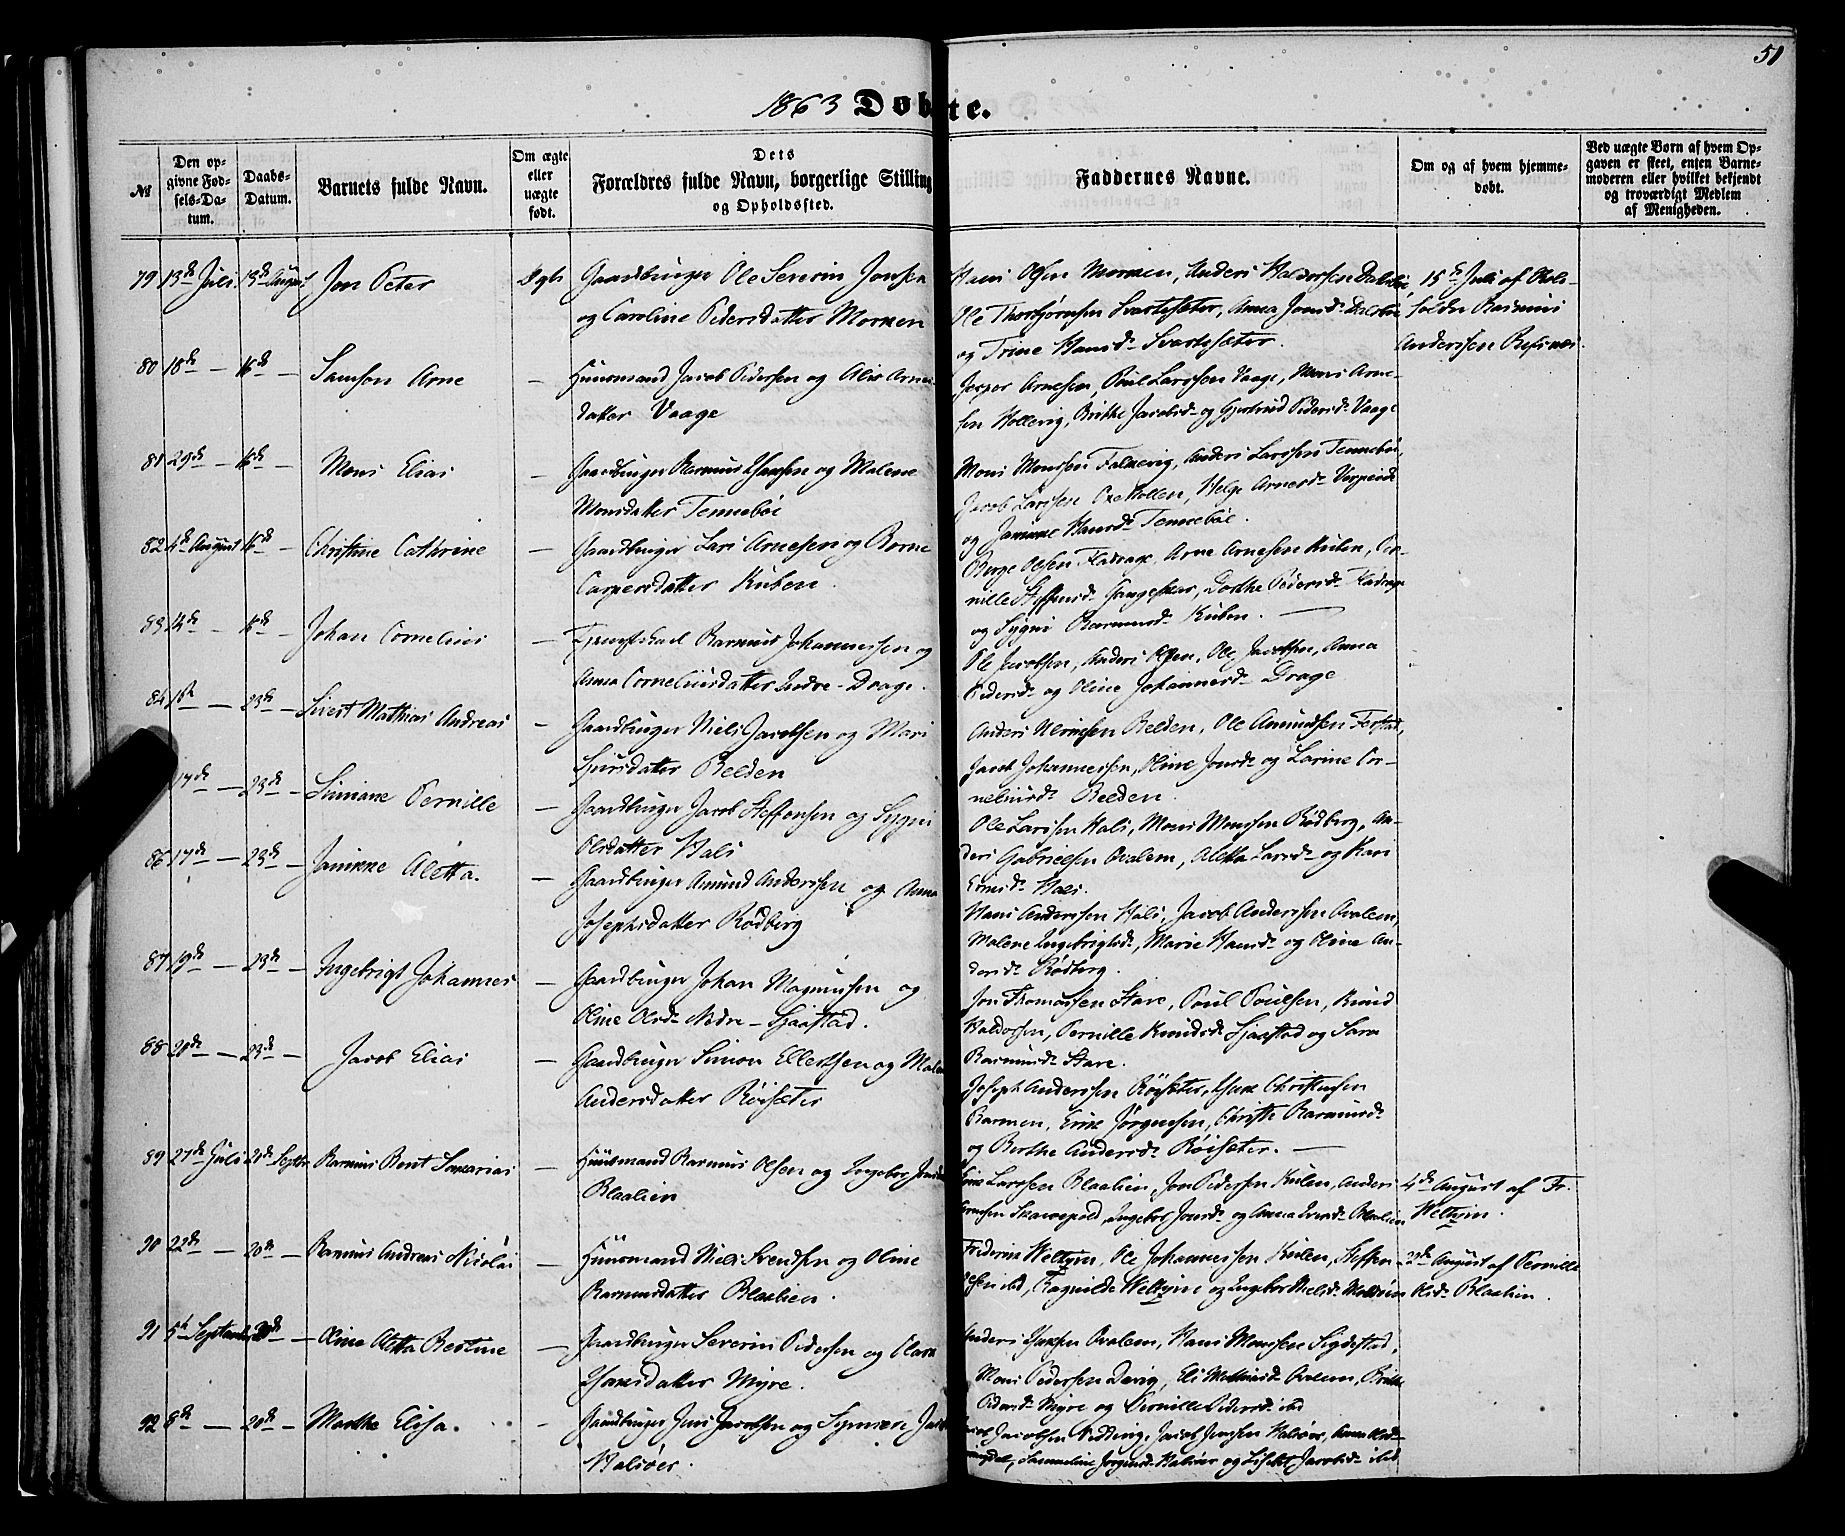 51
1863 Døbte.
№
Den op-
givne Fød-
sels-Da-
tum.
Daabs-
Datum.
Barnets fulde Navn.
Om ægte
eller
uægte
født.
Dets
Forældres fulde Navn, borgerlige Stilling
og Opholdssted.
Faddernes Navne.
Om og af hvem hjemme-
døbt.
Ved uægte Børn af hvem Op-
gaven er skeet, enten Barne-
moderen eller hvilket bekjendt
og troværdigt Medlem
af Menigheden.
79 13de Juli 13de August Jon Peter Ægte Gaardbruger Ole Severin Jonsen
og Caroline Pedersdatter Mornen
Hans Olsen Mornen, Anders Haldorssen Dalsbø,
Ole Thorbjørnsen Svartesæter, Anna Jonsd. Dalsbø
og Trine Hansd. Svartesæter.
15de Juli af
Rasmus
Anderssen Refsnæs.
80 18de — 16de — Samson Arne — Huusmand Jacob Pedersen og Arnes-
datter Vaage
Jesper Arnesen, Poul Larssen Vaage, Mons Arne-
sen Hollevig, Brithe Jacobsd. og Gjertrud Pedersd. Vaage
81 29de — 16de — Mons Elias — Gaardbruger Rasmus Hansen og Malene
Monsdatter Tennebøe
Mons Monssen Falkevig, Anders Larssen Tennebøe,
Jacob Larssen Oxehollen, Helge Arnesd.
og Hansd. Tennebøe.
82 4de August 16de — Christine Cathrine — Gaardbruger Lars Arnesen og
Caspersdatter Kuben.
Børge Olsen Fladrage, Arne Arnesen Kuben, Per-
nille Steffensd. Dorthe Pedersd. Fladrage
og Sygni Rasmusd. Kuben. —
83 14de — 16de — Johan Cornelius — Rasmus Johannessen og
Anna Corneliusdatter Indre-Drage.
Ole Jacobsen, Anders Olsen, Ole Jacobsen, Anna
Pedersd. og Oline Johannesd. Drage
84 — 23de — Sivert Mathias Andreas — Gaardbruger Niels Jacobsen og Mari
Sjursdatter Belden
Anders Belden, Ole Amundsen Ferstad,
Jacob Johannessen, Oline Jonsd. og Larine Cor-
neliusd. Belden.
17de — 23de — Simiane Pernille — Gaardbruger Jacob Steffensen og Sygni
Olsdatter Hals
Ole Larssen Hals, Mons Monssen Rødberg, An-
ders Gabrielsen Ovalem, Aletta Larsd. og Kari
Hals.
86 17de — 23de — Janikke Aletta. — Gaardbruger Amund Anderssen og Anna
Josephsdatter Rødberg
Hans Anderssen Hals, Jacob Anderssen Ovalem,
Malene Ingebrigtsd., Marie Hansd. og Oline An-
dersd. Rødberg.
87 19de — 23de — Ingebrigt Johannes — Gaardbruger Johan Magnussen og
Oline Olsd. Nedre-Sjaastad.
Jon Thomassen Stave, Poul Poulsen, Knud
Haldorsen, Pernille Knudsd. Sjaastad og Sara
Rasmusd. Stave.
88 20de — 23de — Jacob Elias — Gaardbruger Simon Ellertsen og Malene
Andersdatter Røisæter
Joseph Anderssen Røisæter, Christensen
Barmen, Jørgensen, Christi Rasmusd.
og Berthe Andersd. Røisæter. —
89 27de Juli 20de Septbr Rasmus Bent Samarias — Huusmand Rasmus Olsen og Ingebor
Blaalien
Larssen Blaalien, Jon Pedersen Kulen, Anders
Ingebor Jonsd. og Anna Blaalien
4de August af Fr.
Welhjem.
90 22de — 20de — Rasmus Andreas Nicolai — Huusmand Niels Svendsen og Oline
Rasmusdatter Blaalien.
Frederik Welhjem, Ole Johannessen Kulen, Steffen
Olsen ibd, Ragnilde Welhjem og Ingebor Nielsd.
2de August af Pernille
Olsd. Blaalien.
91 5te September 20de — Oline Aletta Bestine — Gaardbruger Severin Pedersen og
Hansdatter Myre.
Anders Ovalem, Hans Monssen Sigdestad,
Mons Pedersen Davig, Eli Ovalem, Brithe
Pedersd. Myre og Pernille Pedersd. ibd
92 8de — 20de — Marthe Elisa. — Gaardbruger Jens Jacobsen og Synneve
Halsøer.
Jacob Jacobsen Jacob Jenssen Halsøer,
Jørgensd. Halsøer og Lisbet Jacobsd. ibd